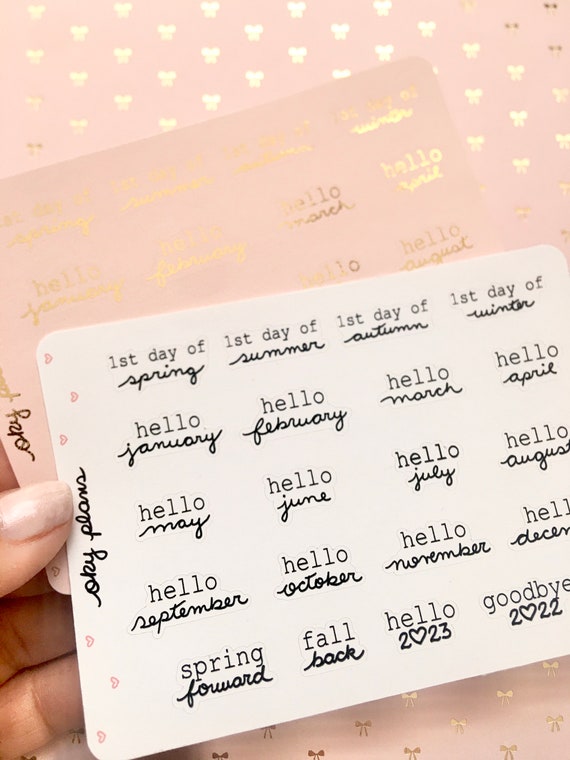 1st day of 1st day of 1st day of 1st day of
spring summer autumn winter
hello hello hello hello
january february march april
hello hello
august
oky
1st day of 1st day of 1st day of 1st day of
spring summer autumn winter
hello hello hello hello
january february march april
hello hello hello hello
may june july august
hello hello hello hell
september october november decem
spring fall hello goodbye
forward back 2♡23 2♡22
oky plans